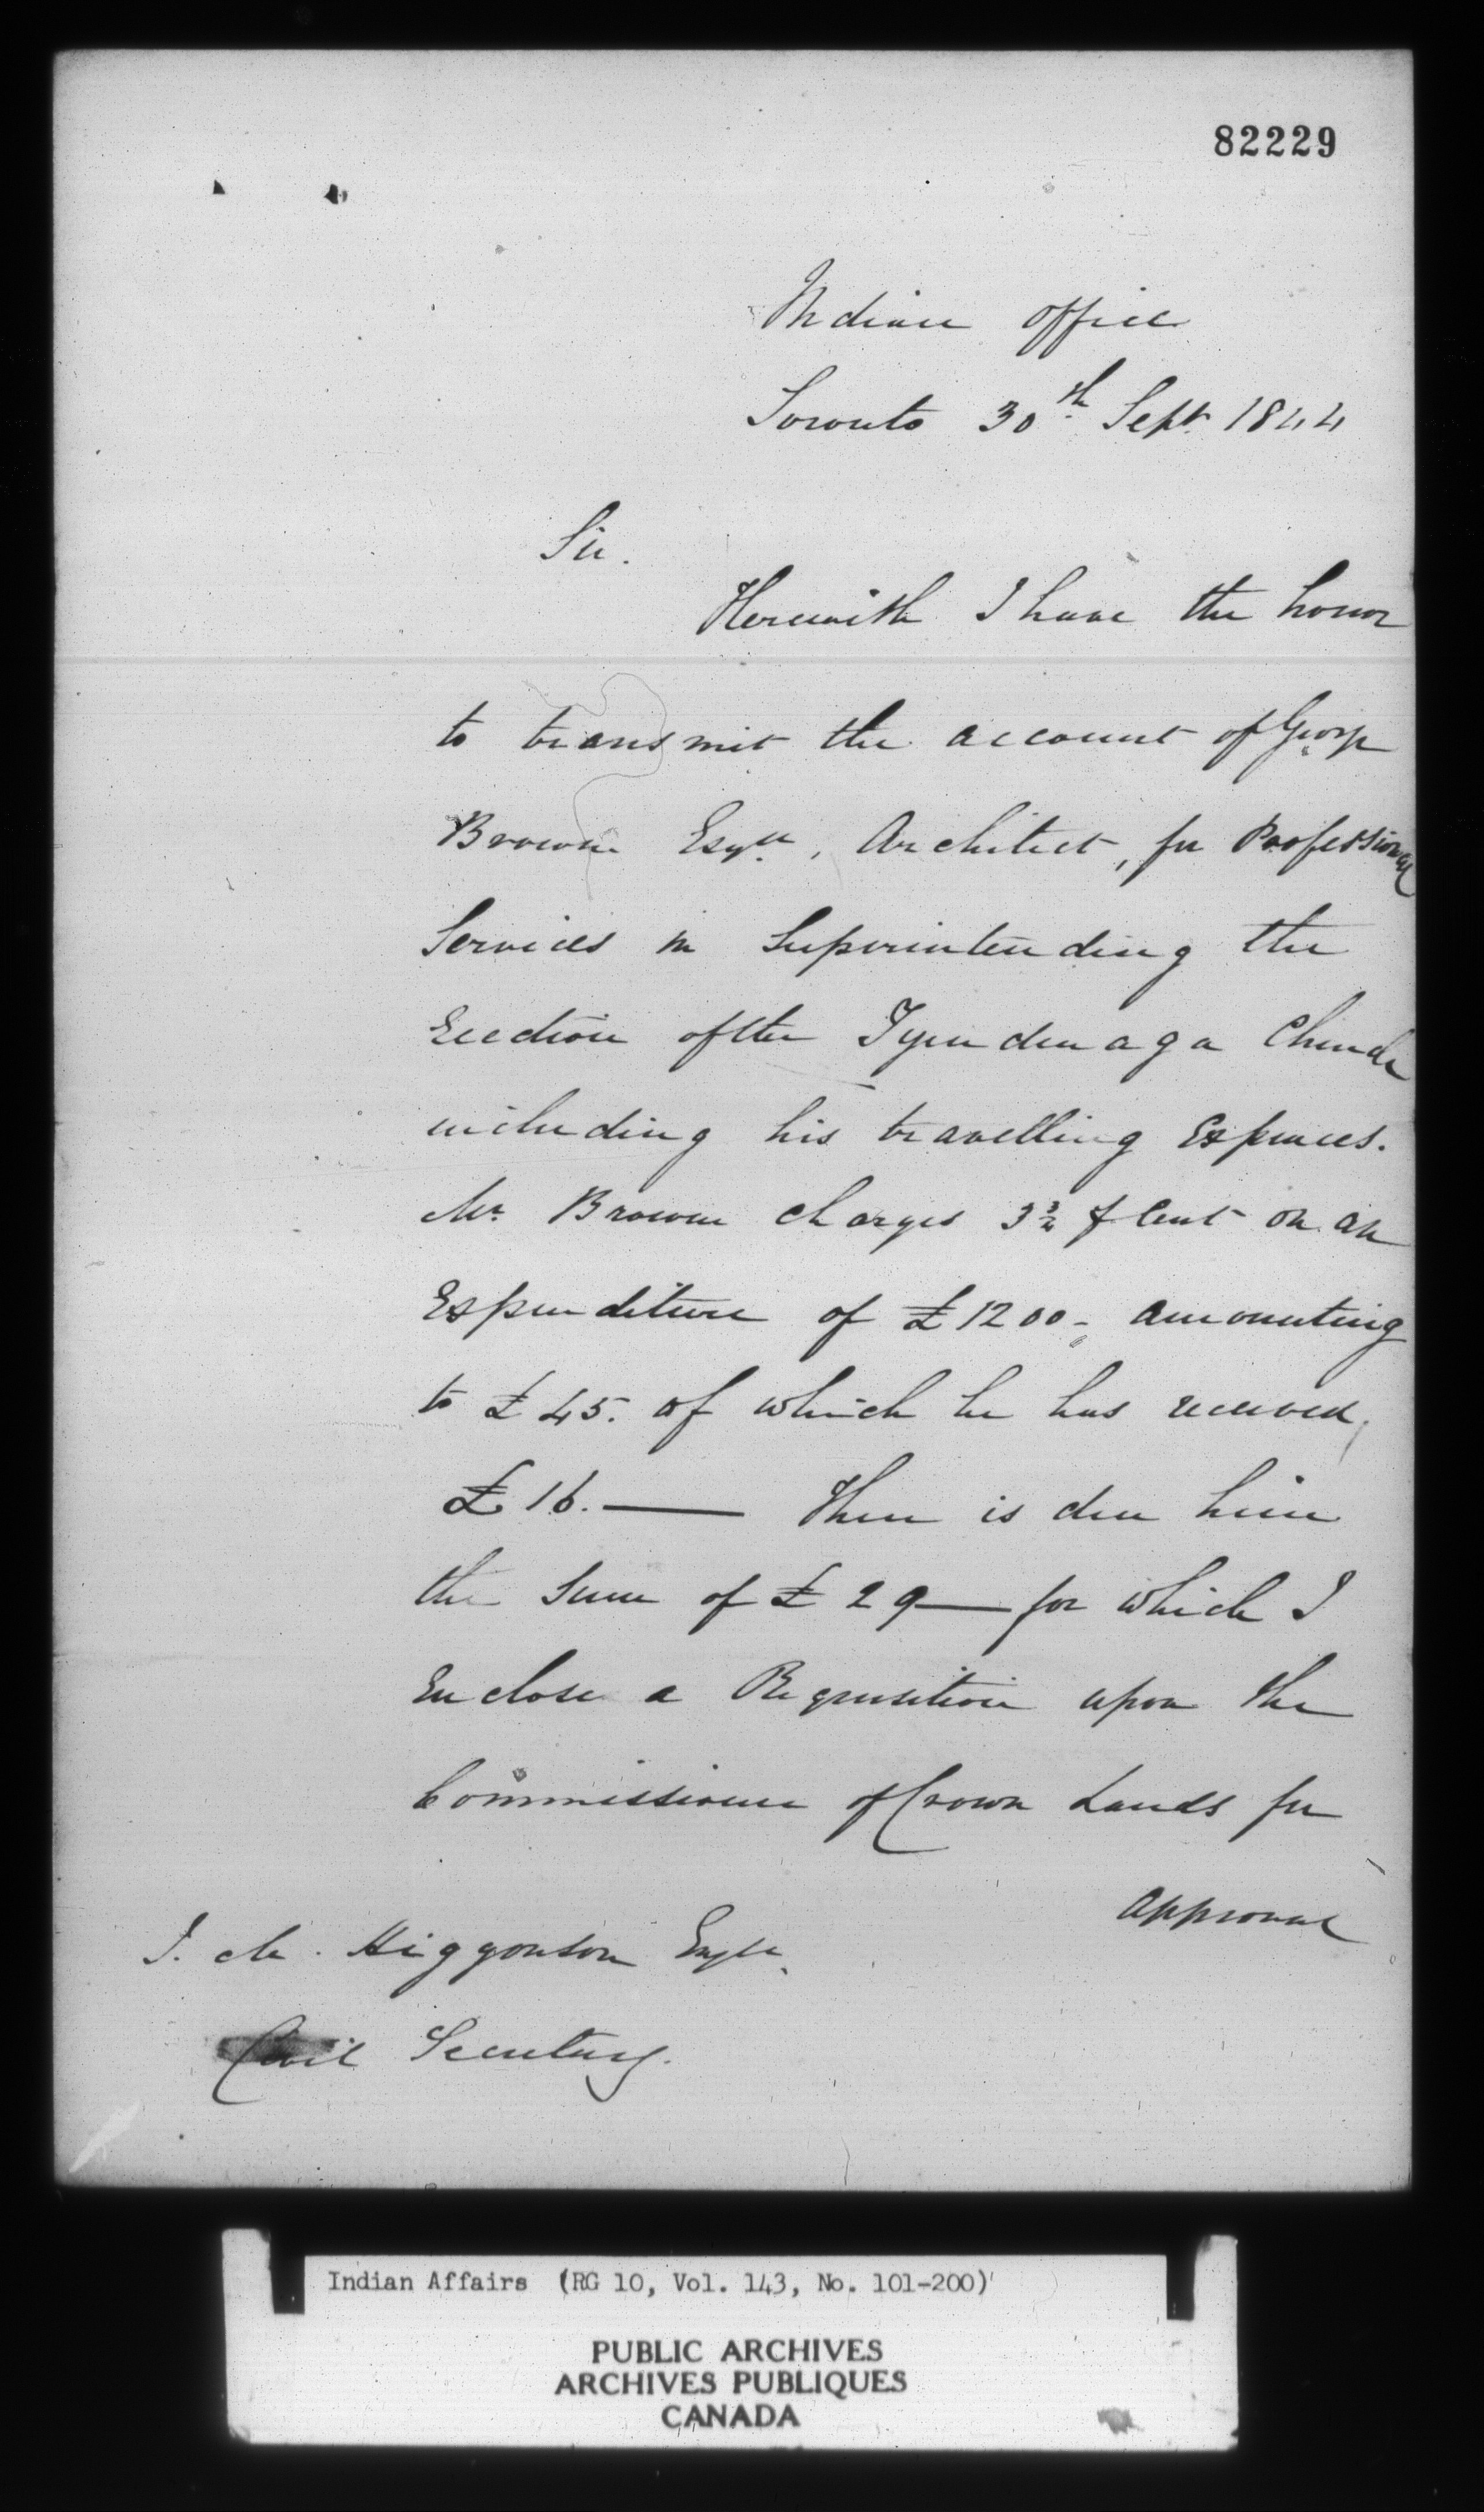 82229
Indian Office
Toronto 30th Sept 1844
Sir.
Herewith I have the honor
to transmit the account of George
Browne Esqre, Architect, for Professional
Services in Superintending the
Erection of the Tyendenaga Church
including his travelling Expences.
Mr. Browne charges 3¾ ⅌ Cent on an
Expenditure of £1200- amounting
to £45. of which he has received,
£16. — There is due him
the Sum of £29 — for which I
Enclose a Requisition upon the
Commissioner of Crown Lands for
approval
J. M. Higgonson Esqre.
Civil Secretary.
Indian Affairs (RG 10, Vol. 143, No. 101-200)
PUBLIC ARCHIVES
ARCHIVES PUBLIQUES
CANADA